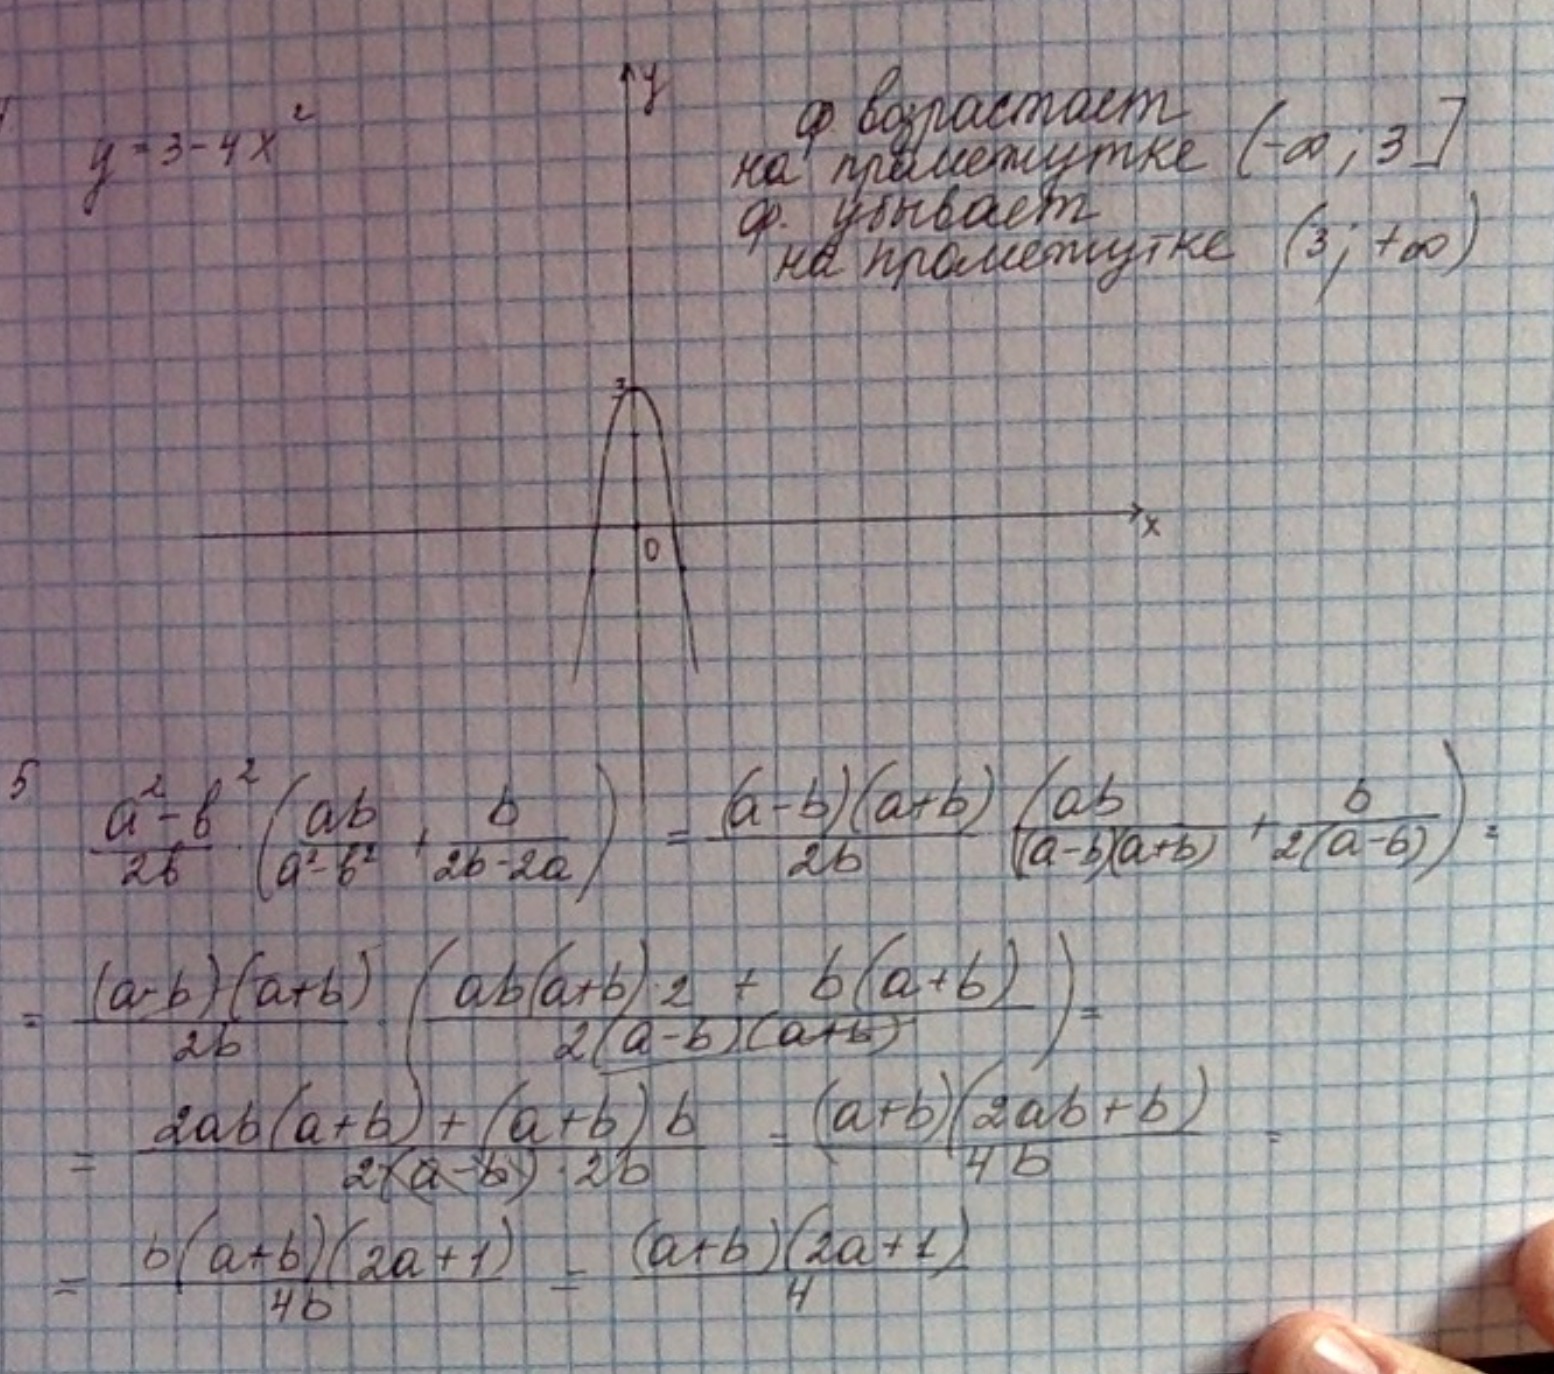 4
y = 3 - 4x²
y
ф. возрастает
на прометутке (-∞; 3]
ф. убывает
на прометутке (3; +∞)
3
0
x
5
(a² - b²)/(2b) · (ab/(a² - b²) + b/(2b - 2a)) = ((a - b)(a + b))/(2b) (ab/((a - b)(a + b)) + b/(2(a - b))) =
= ((a - b)(a + b))/(2b) ((ab(a + b)·2 + b(a + b))/(2(a - b)(a + b))) =
= (2ab(a + b) + (a + b)b)/(2(a - b)·2b) = ((a + b)(2ab + b))/(4b) =
= (b(a + b)(2a + 1))/(4b) = ((a + b)(2a + 1))/4